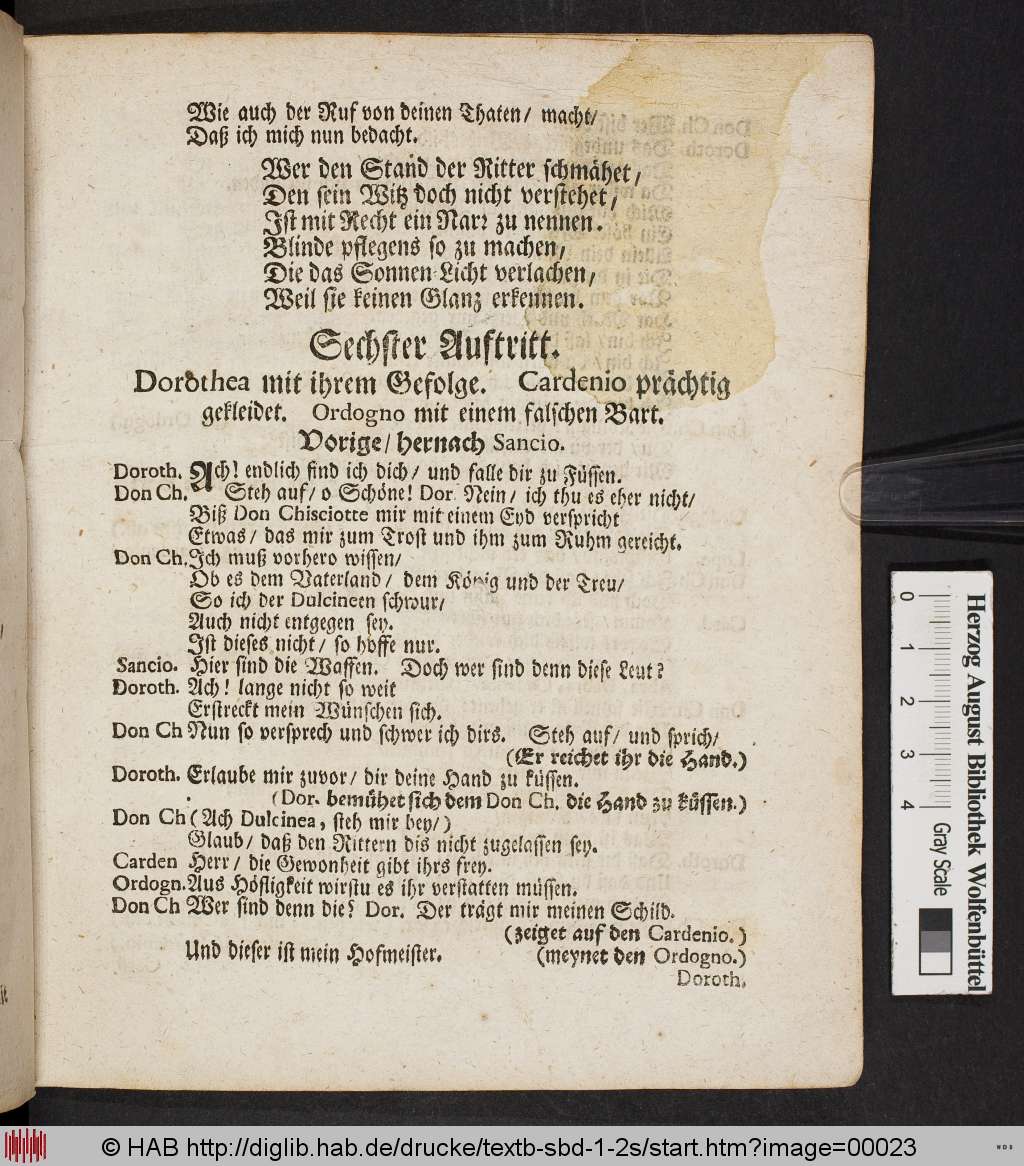 Wie auch der Ruf von deinen Thaten/ macht/
Daß ich mich nun bedacht.
Wer den Stand der Ritter schmähet/
Den sein Witz doch nicht verstehet/
Ist mit Recht ein Narr zu nennen.
Blinde pflegens so zu machen/
Die das Sonnen-Licht verlachen/
Weil sie keinen Glanz erkennen.
Sechster Auftritt.
Dorothea mit ihrem Gefolge. Cardenio prächtig
gekleidet. Ordogno mit einem falschen Bart.
Vorige/ hernach Sancio.
Doroth. Ach! endlich find ich dich/ und falle dir zu Füssen.
Don Ch. Steh auf/ o Schöne! Dor. Nein/ ich thu es eher nicht/
Biß Don Chisciotte mir mit einem Eyd verspricht
Etwas/ das mir zum Trost und ihm zum Ruhm gereicht.
Don Ch. Ich muß vorhero wissen/
Ob es dem Vaterland/ dem König und der Treu/
So ich der Dulcineen schwur/
Auch nicht entgegen sey.
Ist dieses nicht/ so hoffe nur.
Sancio. Hier sind die Waffen. Doch wer sind denn diese Leut?
Doroth. Ach! lange nicht so weit
Erstreckt mein Wünschen sich.
Don Ch Nun so versprech und schwer ich dirs. Steh auf/ und sprich/
(Er reichet ihr die Hand.)
Doroth. Erlaube mir zuvor/ dir deine Hand zu küssen.
(Dor. bemühet sich dem Don Ch. die Hand zu küssen.)
Don Ch (Ach Dulcinea, steh mir bey/)
Glaub/ daß den Rittern dis nicht zugelassen sey.
Carden Herr/ die Gewonheit gibt ihrs frey.
Ordogn. Aus Höfligkeit wirstu es ihr verstatten müssen.
Don Ch Wer sind denn die? Dor. Der trägt mir meinen Schild.
(zeiget auf den Cardenio.)
Und dieser ist mein Hofmeister. (meynet den Ordogno.)
Doroth.
Herzog August Bibliothek Wolfenbüttel
0 1 2 3 4 Gray Scale
© HAB http://diglib.hab.de/drucke/textb-sbd-1-2s/start.htm?image=00023